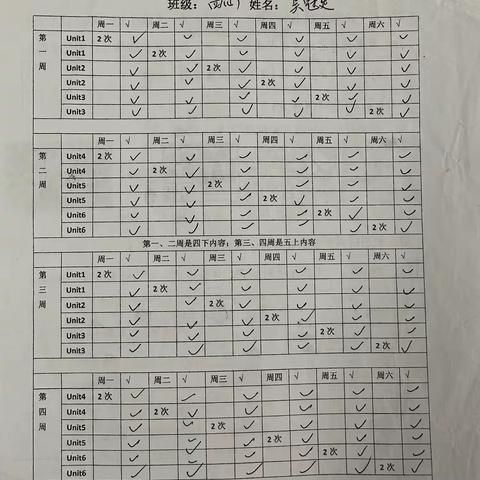 班级: 姓名:
周一 √ 周二 √ 周三 √ 周四 √ 周五 √ 周六 √
第一周
Unit1 2次 √ √ √ √ √ √
Unit1 √ 2次 √ √ √ √ √
Unit2 √ √ 2次 √ √ √ √
Unit2 √ √ √ 2次 √ √ √
Unit3 √ √ √ √ 2次 √ √
Unit3 √ √ √ √ √ 2次 √
周一 √ 周二 √ 周三 √ 周四 √ 周五 √ 周六 √
第二周
Unit4 2次 √ √ √ √ √ √
Unit4 √ 2次 √ √ √ √ √
Unit5 √ √ 2次 √ √ √ √
Unit5 √ √ √ 2次 √ √ √
Unit6 √ √ √ √ 2次 √ √
Unit6 √ √ √ √ √ 2次 √
第一、二周是四下内容；第三、四周是五上内容
周一 √ 周二 √ 周三 √ 周四 √ 周五 √ 周六 √
第三周
Unit1 2次 √ √ √ √ √ √
Unit1 √ 2次 √ √ √ √ √
Unit2 √ √ 2次 √ √ √ √
Unit2 √ √ √ 2次 √ √ √
Unit3 √ √ √ √ 2次 √ √
Unit3 √ √ √ √ √ 2次 √
周一 √ 周二 √ 周三 √ 周四 √ 周五 √ 周六 √
第四周
Unit4 2次 √ √ √ √ √ √
Unit4 √ 2次 √ √ √ √ √
Unit5 √ √ 2次 √ √ √ √
Unit5 √ √ √ 2次 √ √ √
Unit6 √ √ √ √ 2次 √ √
Unit6 √ √ √ √ √ 2次 √